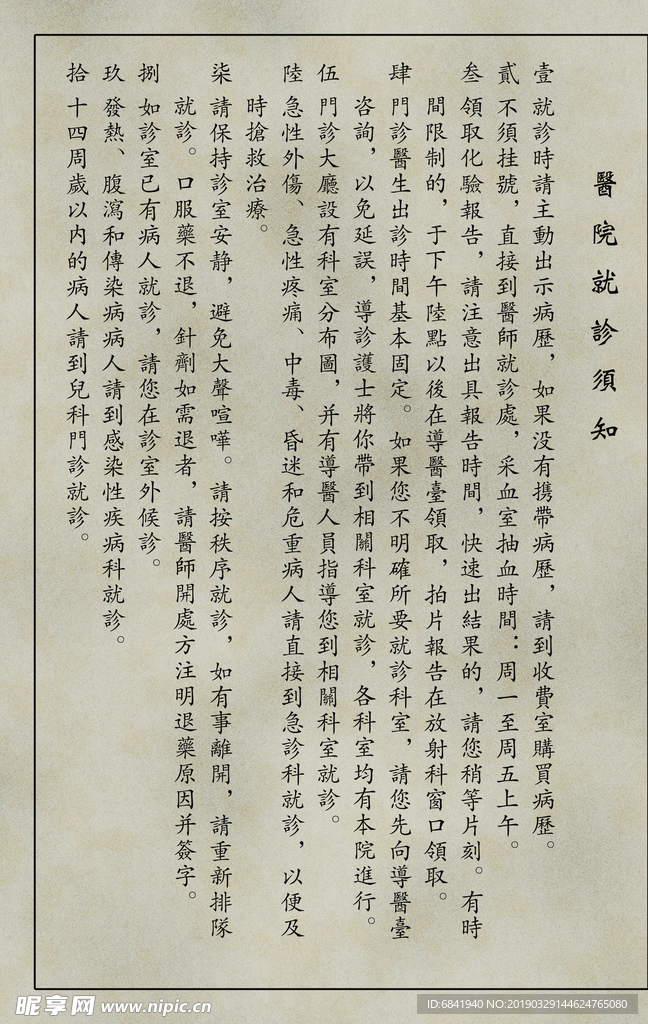 醫院就診須知
壹 就診時請主動出示病歷，如果没有携帶病歷，請到收費室購買病歷。
貳 不須挂號，直接到醫師就診處，采血室抽血時間：周一至周五上午。
叁 領取化驗報告，請注意出具報告時間，快速出結果的，請您稍等片刻。有時
間限制的，于下午陸點以後在導醫臺領取，拍片報告在放射科窗口領取。
肆 門診醫生出診時間基本固定。如果您不明確所要就診科室，請您先向導醫臺
咨詢，以免延誤，導診護士將你帶到相關科室就診，各科室均有本院進行。
伍 門診大廳設有科室分布圖，并有導醫人員指導您到相關科室就診。
陸 急性外傷、急性疼痛、中毒、昏迷和危重病人請直接到急診科就診，以便及
時搶救治療。
柒 請保持診室安静，避免大聲喧嘩。請按秩序就診，如有事離開，請重新排隊
就診。口服藥不退，針劑如需退者，請醫師開處方注明退藥原因并簽字。
捌 如診室已有病人就診，請您在診室外候診。
玖 發熱、腹瀉和傳染病病人請到感染性疾病科就診。
拾 十四周歲以内的病人請到兒科門診就診。
昵享网 www.nipic.cn
ID:6841940 NO:20190329144624765080